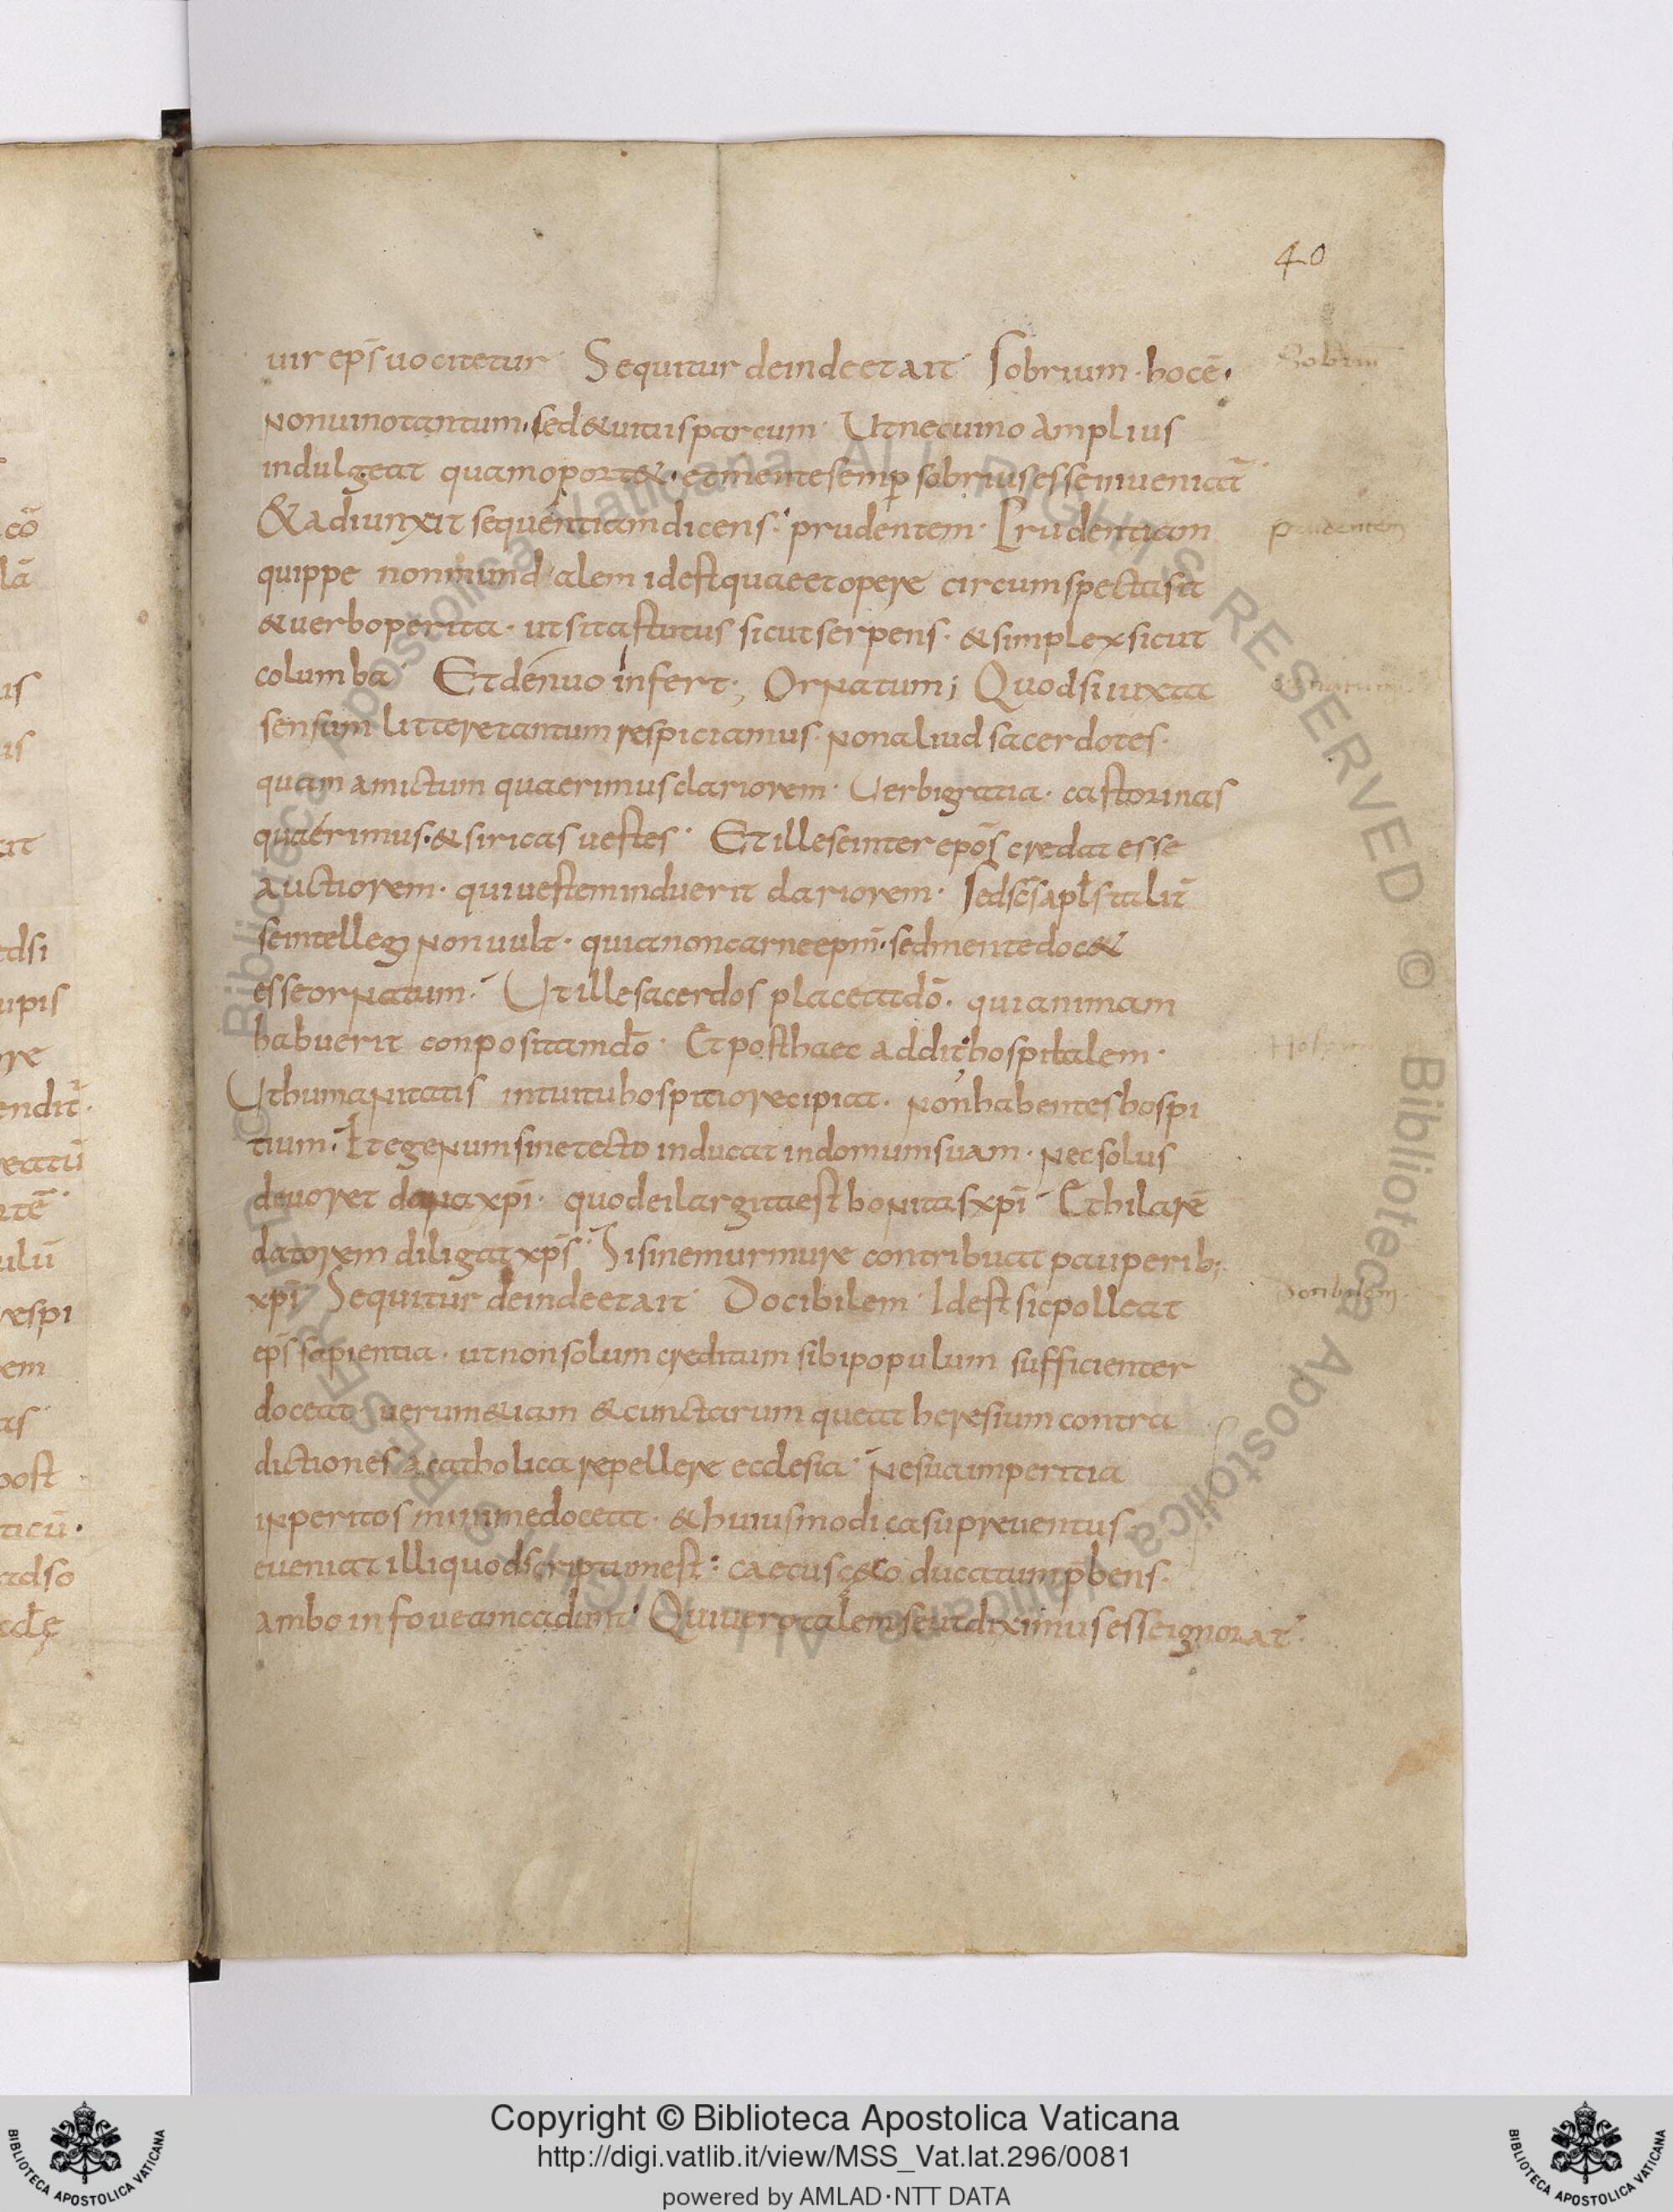 40
uir ep̄s uocitetur· Sequitur deinde et ait· Sobrium· hoc ē·
Sobriū
non uino tantum· sed & uitiis parcum· Ut nec uino amplius
indulgeat quam oport&· et mente semp̱ sobrius esse inueniat̄
& adiunxit sequentiam dicens· prudentem· Prudentiam
prudentem
quippe non mundialem id est quae et opere circumspecta sit
& uerbo perita· ut sit astutus sicut serpens· & simplex sicut
columba· Et denuo infert·; Ornatum; Quod si iuxta
ornatum
sensum littere tantum respiciamus· non aliud sacerdotes·
quam amictum quaerimus clariorem· Uerbi gratia· castorinas
quaerimus· & siricas uestes· Et ille se inter epōs credat esse
auctiorem· qui uestem induerit clariorem· Sed sc̄s apl̄s talit̄
se intellegi non uult· quia non carne epm̄· sed mente doc&
esse ornatum· Ut ille sacerdos placeat dō· qui animam
habuerit conpositam dō· Et post haec addit; hospitalem·
Ut humanitatis intuitu hospitio recipiat· non habentes hospi
tium· Et egenum sine tecto inducat in domum suam· nec solus
deuoret dona xp̄i· quod ei largita est bonitas xp̄i· Et hilarē
datorem diligat xp̄s· Si sine murmure contribuat pauperib;
xp̄i· Sequitur deinde et ait· Docibilem· Id est sic polleat
Docibilem
ep̄s sapientia· ut non solum creditum sibi populum sufficienter
doceat· uerum &iam & cunctarum queat heresium contra
dictiones a catholica repellere ecclesia· Ne sua imperitia
inperitos minime doceat· & huiusmodi casu preuentus
eueniat illi quod scriptum est: caecus cęco ducatum p̄bens·
ambo in foueam cadunt· Qui uero talem se ut diximus esse ignorat·
cō
lā
us
us
dsi
upis
re
endit̄·
reatū
tē
ulū
respi
em
as
post
ticū·
adso
ccl̄ę
Copyright © Biblioteca Apostolica Vaticana
http://digi.vatlib.it/view/MSS_Vat.lat.296/0081
powered by AMLAD·NTT DATA
BIBLIOTECA APOSTOLICA VATICANA
BIBLIOTECA APOSTOLICA VATICANA
© Biblioteca Apostolica Vaticana ALL RIGHTS RESERVED © Biblioteca Apostolica Vaticana ALL RIGHTS RESERVED